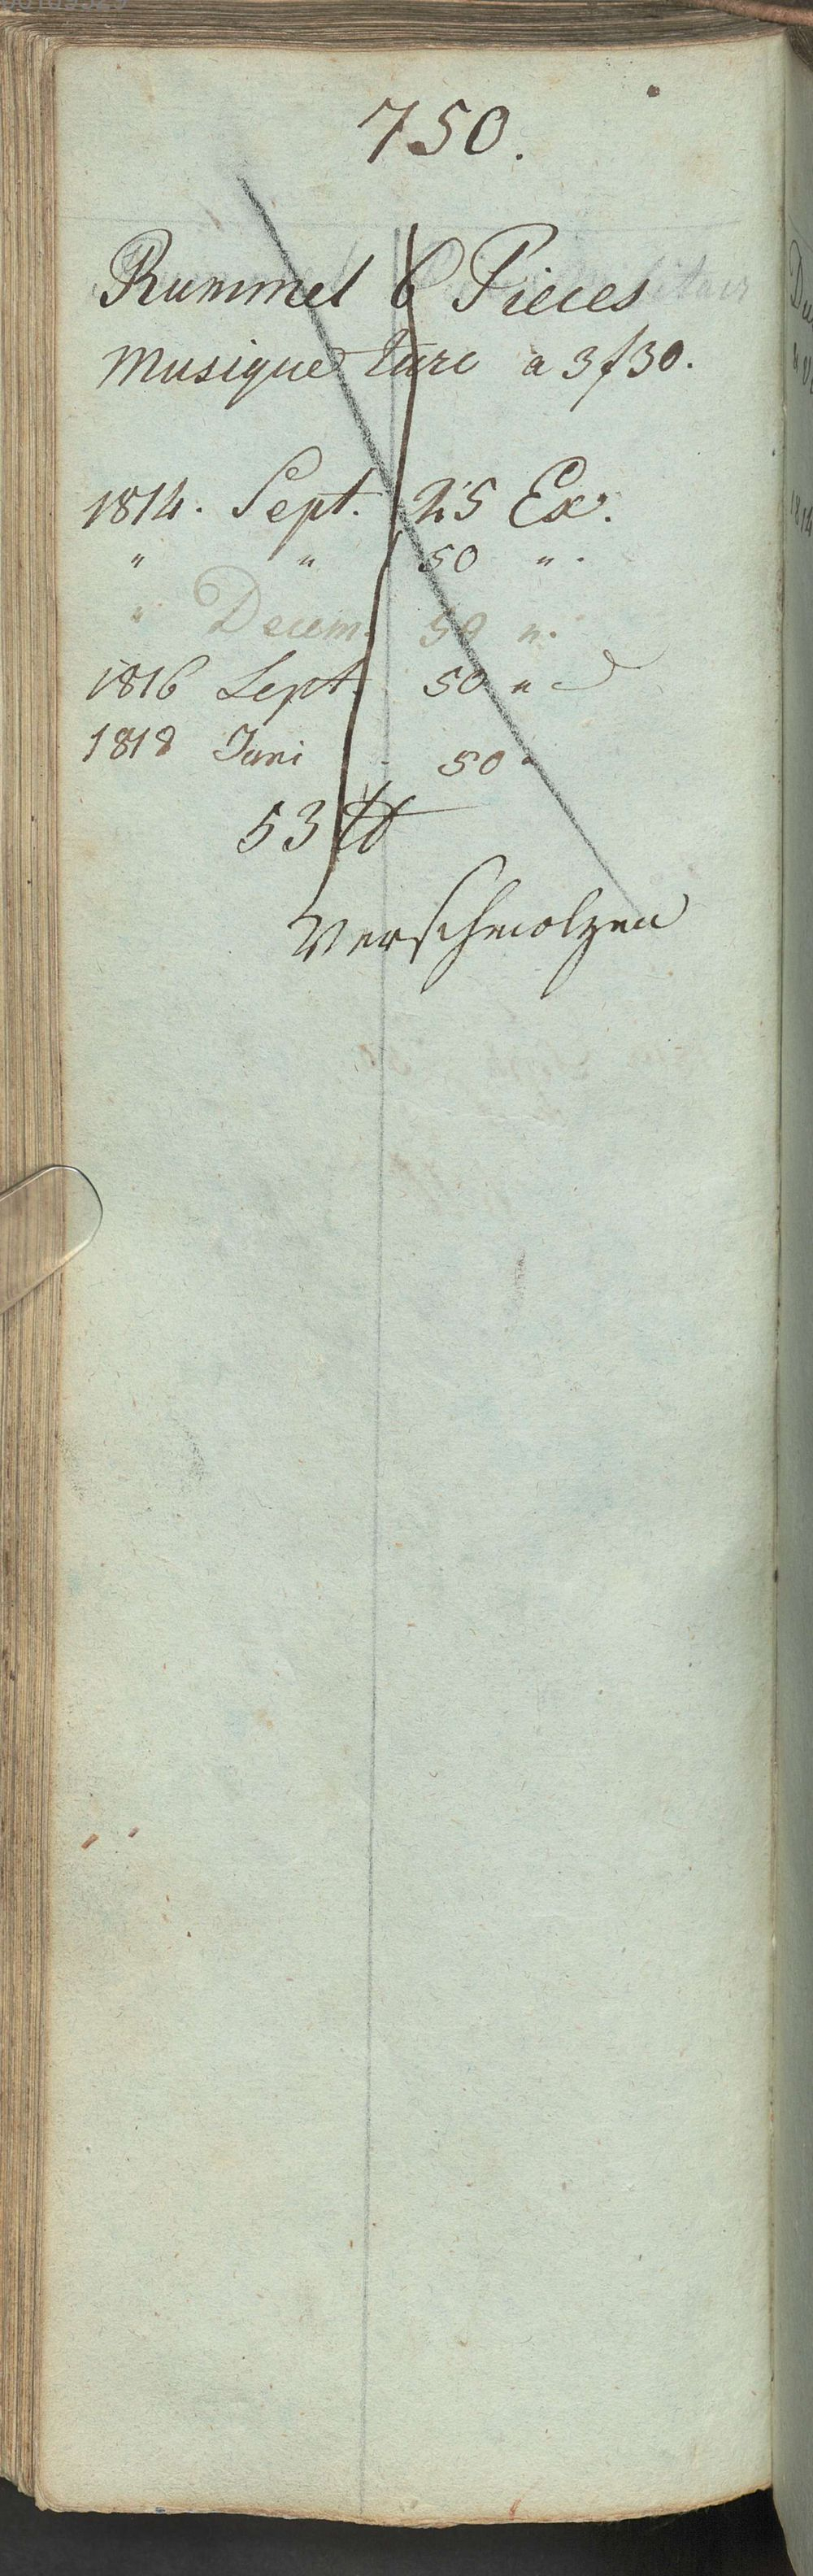 750.
Rummel 6 Pieces
Musique turc a 3f30.
1814. Sept. 25 Ex.
" " 50 ".
" Decem. 50 ".
1816 Sept. 50 "
1818 Juni 50 "
53 ℔
Verschmolzen